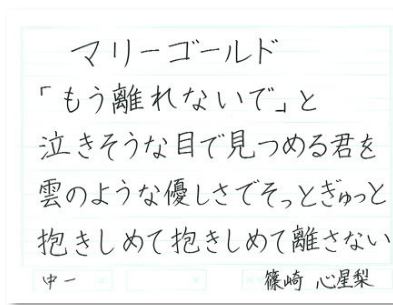 マリーゴールド
「もう離れないで」と
泣きそうな目で見つめる君を
雲のような優しさでそっとぎゅっと
抱きしめて抱きしめて離さない
中一 篠崎 心星梨